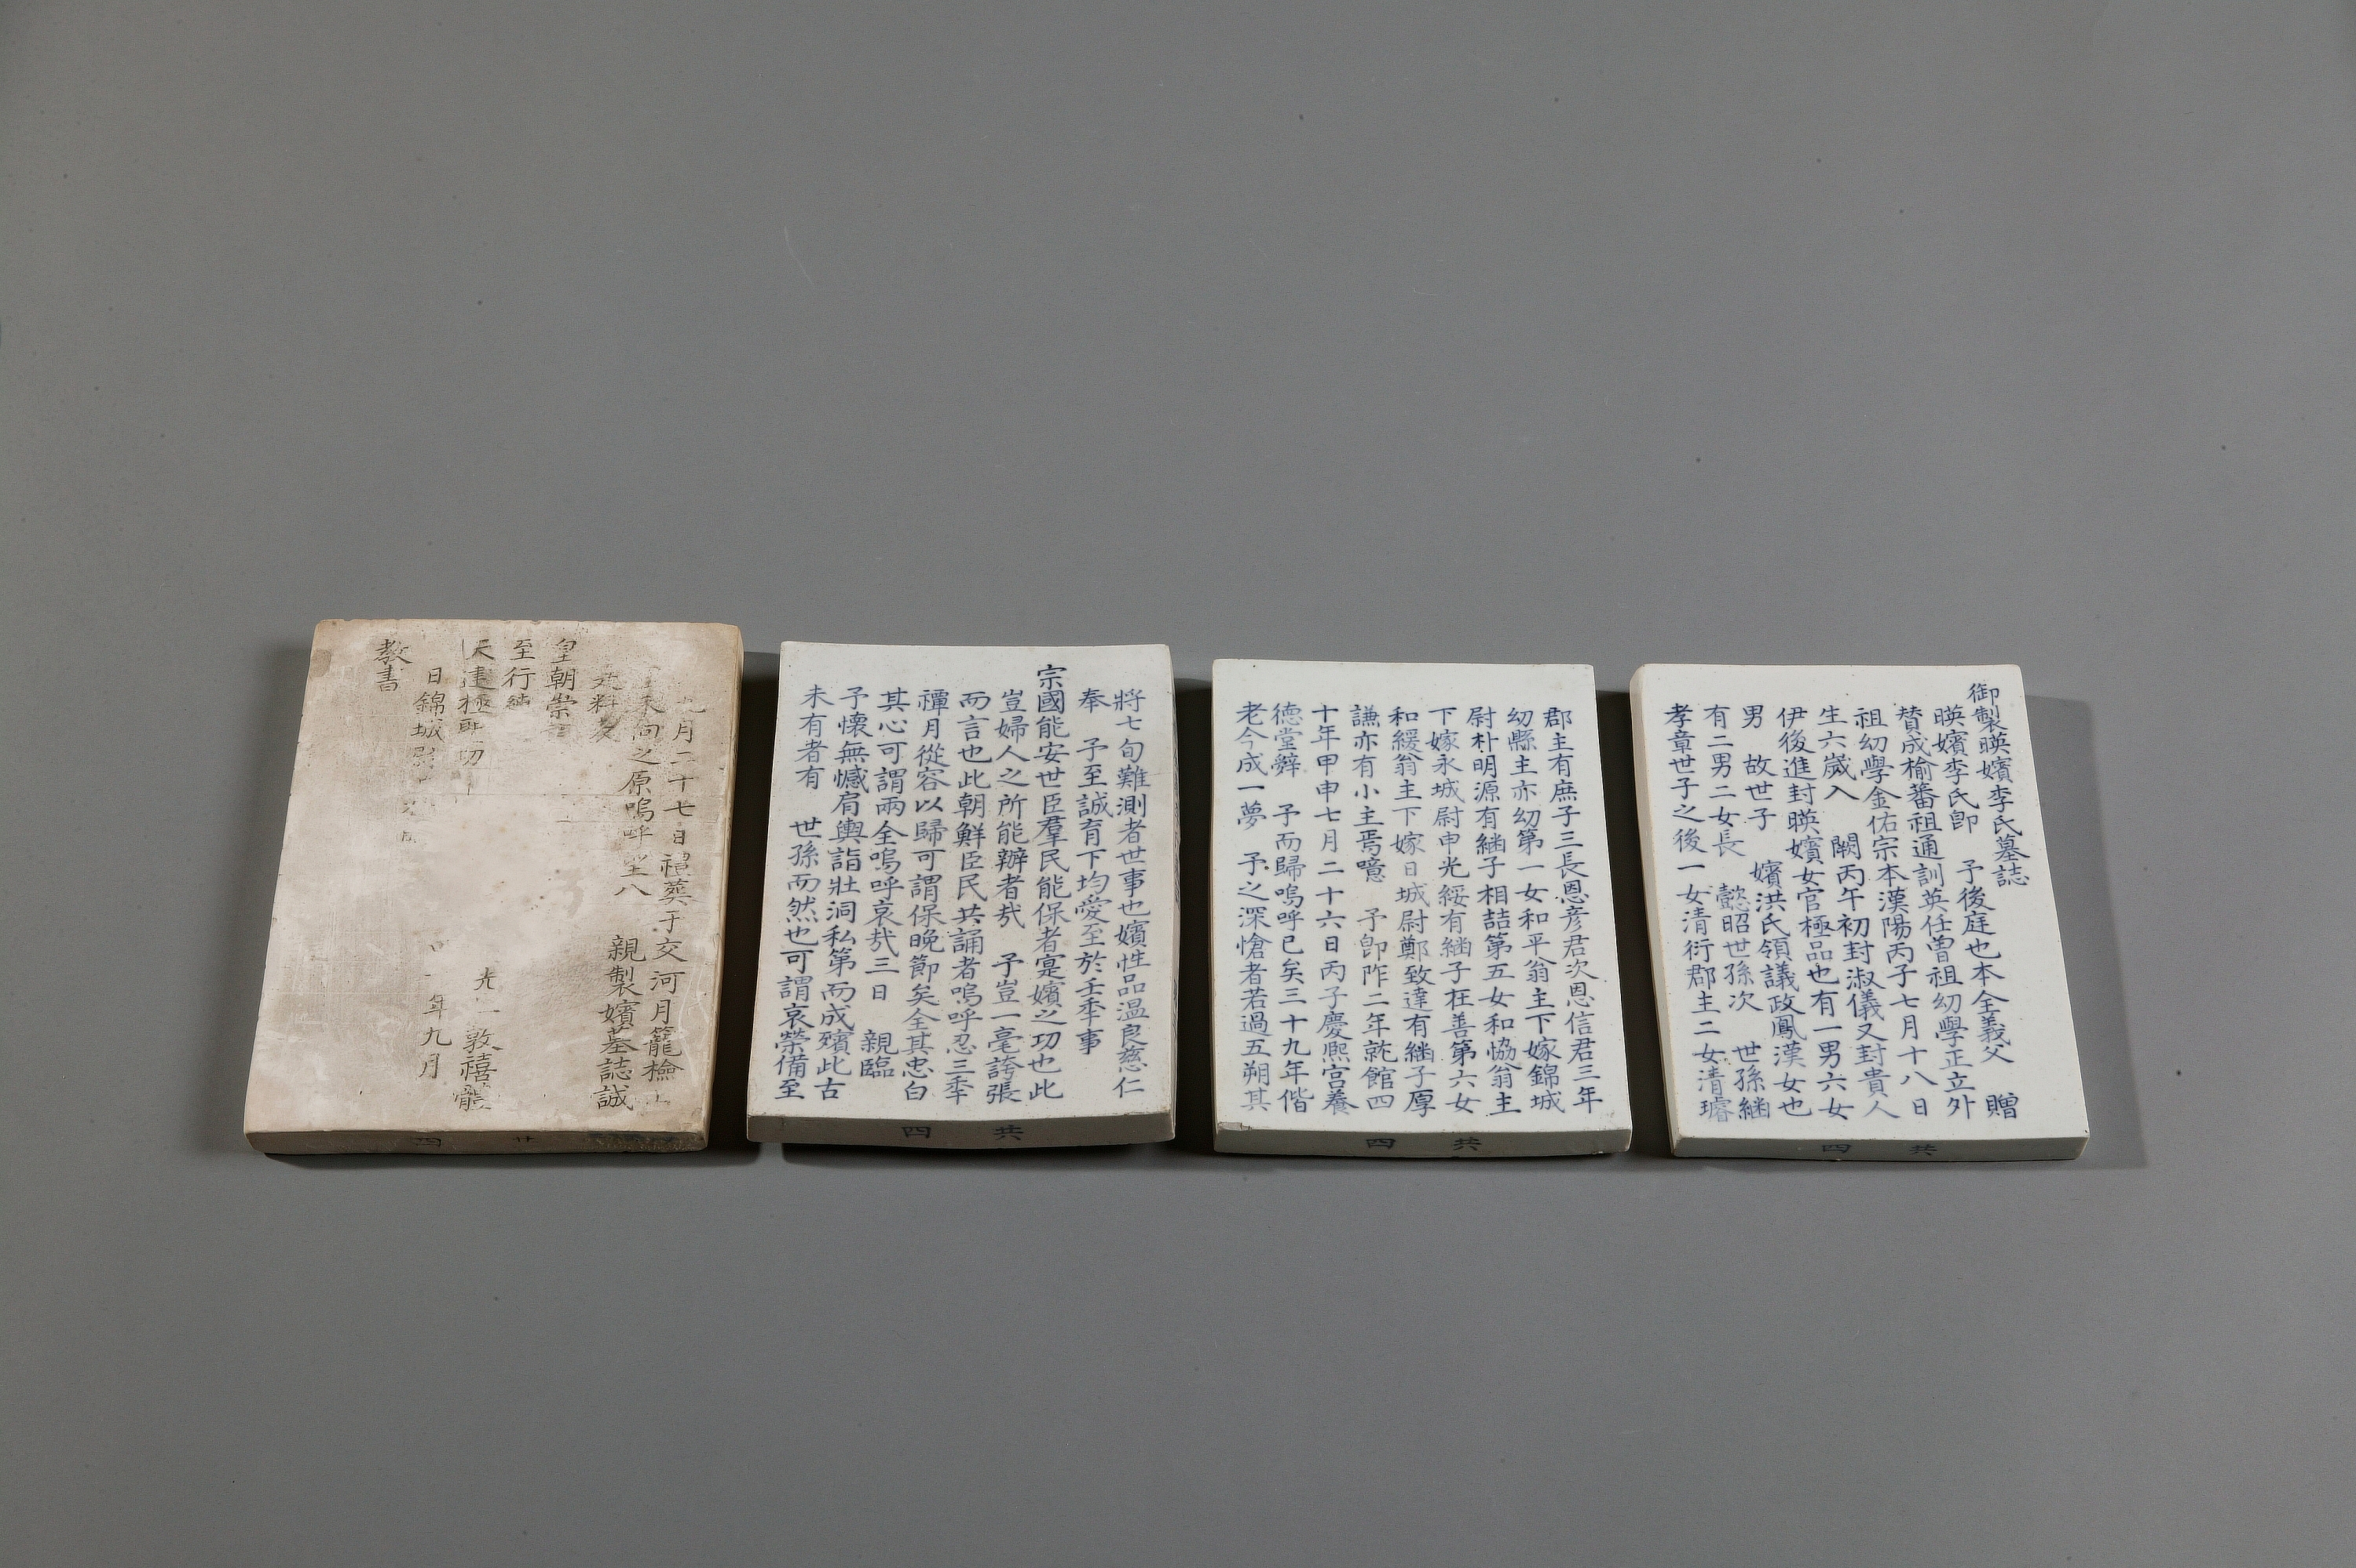 御製暎嬪李氏墓誌
暎嬪李氏卽 予後庭也本全義父 贈
贊成楡蕃祖通訓英任曾祖幼學正立外
祖幼學金佑宗本漢陽丙子七月十八日
生六歲入 闕丙午初封淑儀又封貴人
伊後進封暎嬪女官極品也有一男六女
男 故世子 嬪洪氏領議政鳳漢女也
有二男二女長 懿昭世孫次 世孫繼
孝章世子之後一女清衍郡主二女清璿
共 四
郡主有庶子三長恩彦君次恩信君三年
幼縣主亦幼第一女和平翁主下嫁錦城
尉朴明源有繼子相喆第五女和協翁主
下嫁永城尉申光綏有繼子在善第六女
和緩翁主下嫁日城尉鄭致達有繼子厚
謙亦有小主焉噫 予卽阼二年就館四
十年甲申七月二十六日丙子慶熙宮養
德堂辭 予而歸嗚呼已矣三十九年偕
老今成一夢 予之深愴者若過五朔其
共 四
將七旬難測者世事也嬪性品溫良慈仁
奉 予至誠育下均愛至於壬午事
宗國能安世臣羣民能保者寔嬪之功也此
豈婦人之所能辦者㢤 予豈一毫誇張
而言也此朝鮮臣民共誦者嗚呼忍三年
禫月從容以歸可謂保晚節矣全其忠白
其心可謂兩全嗚呼哀㢤三日 親臨
予懷無憾肩輿詣壯洞私第而成殯此古
未有者有 世孫而然也可謂哀榮備至
共 四
九月二十七日禮葬于交河月籠檢
向之原嗚呼 八 親製嬪墓誌誠
料
皇朝崇
至行純
天建極 功 光 敦禧體
日錦城尉 年九月
教書
四